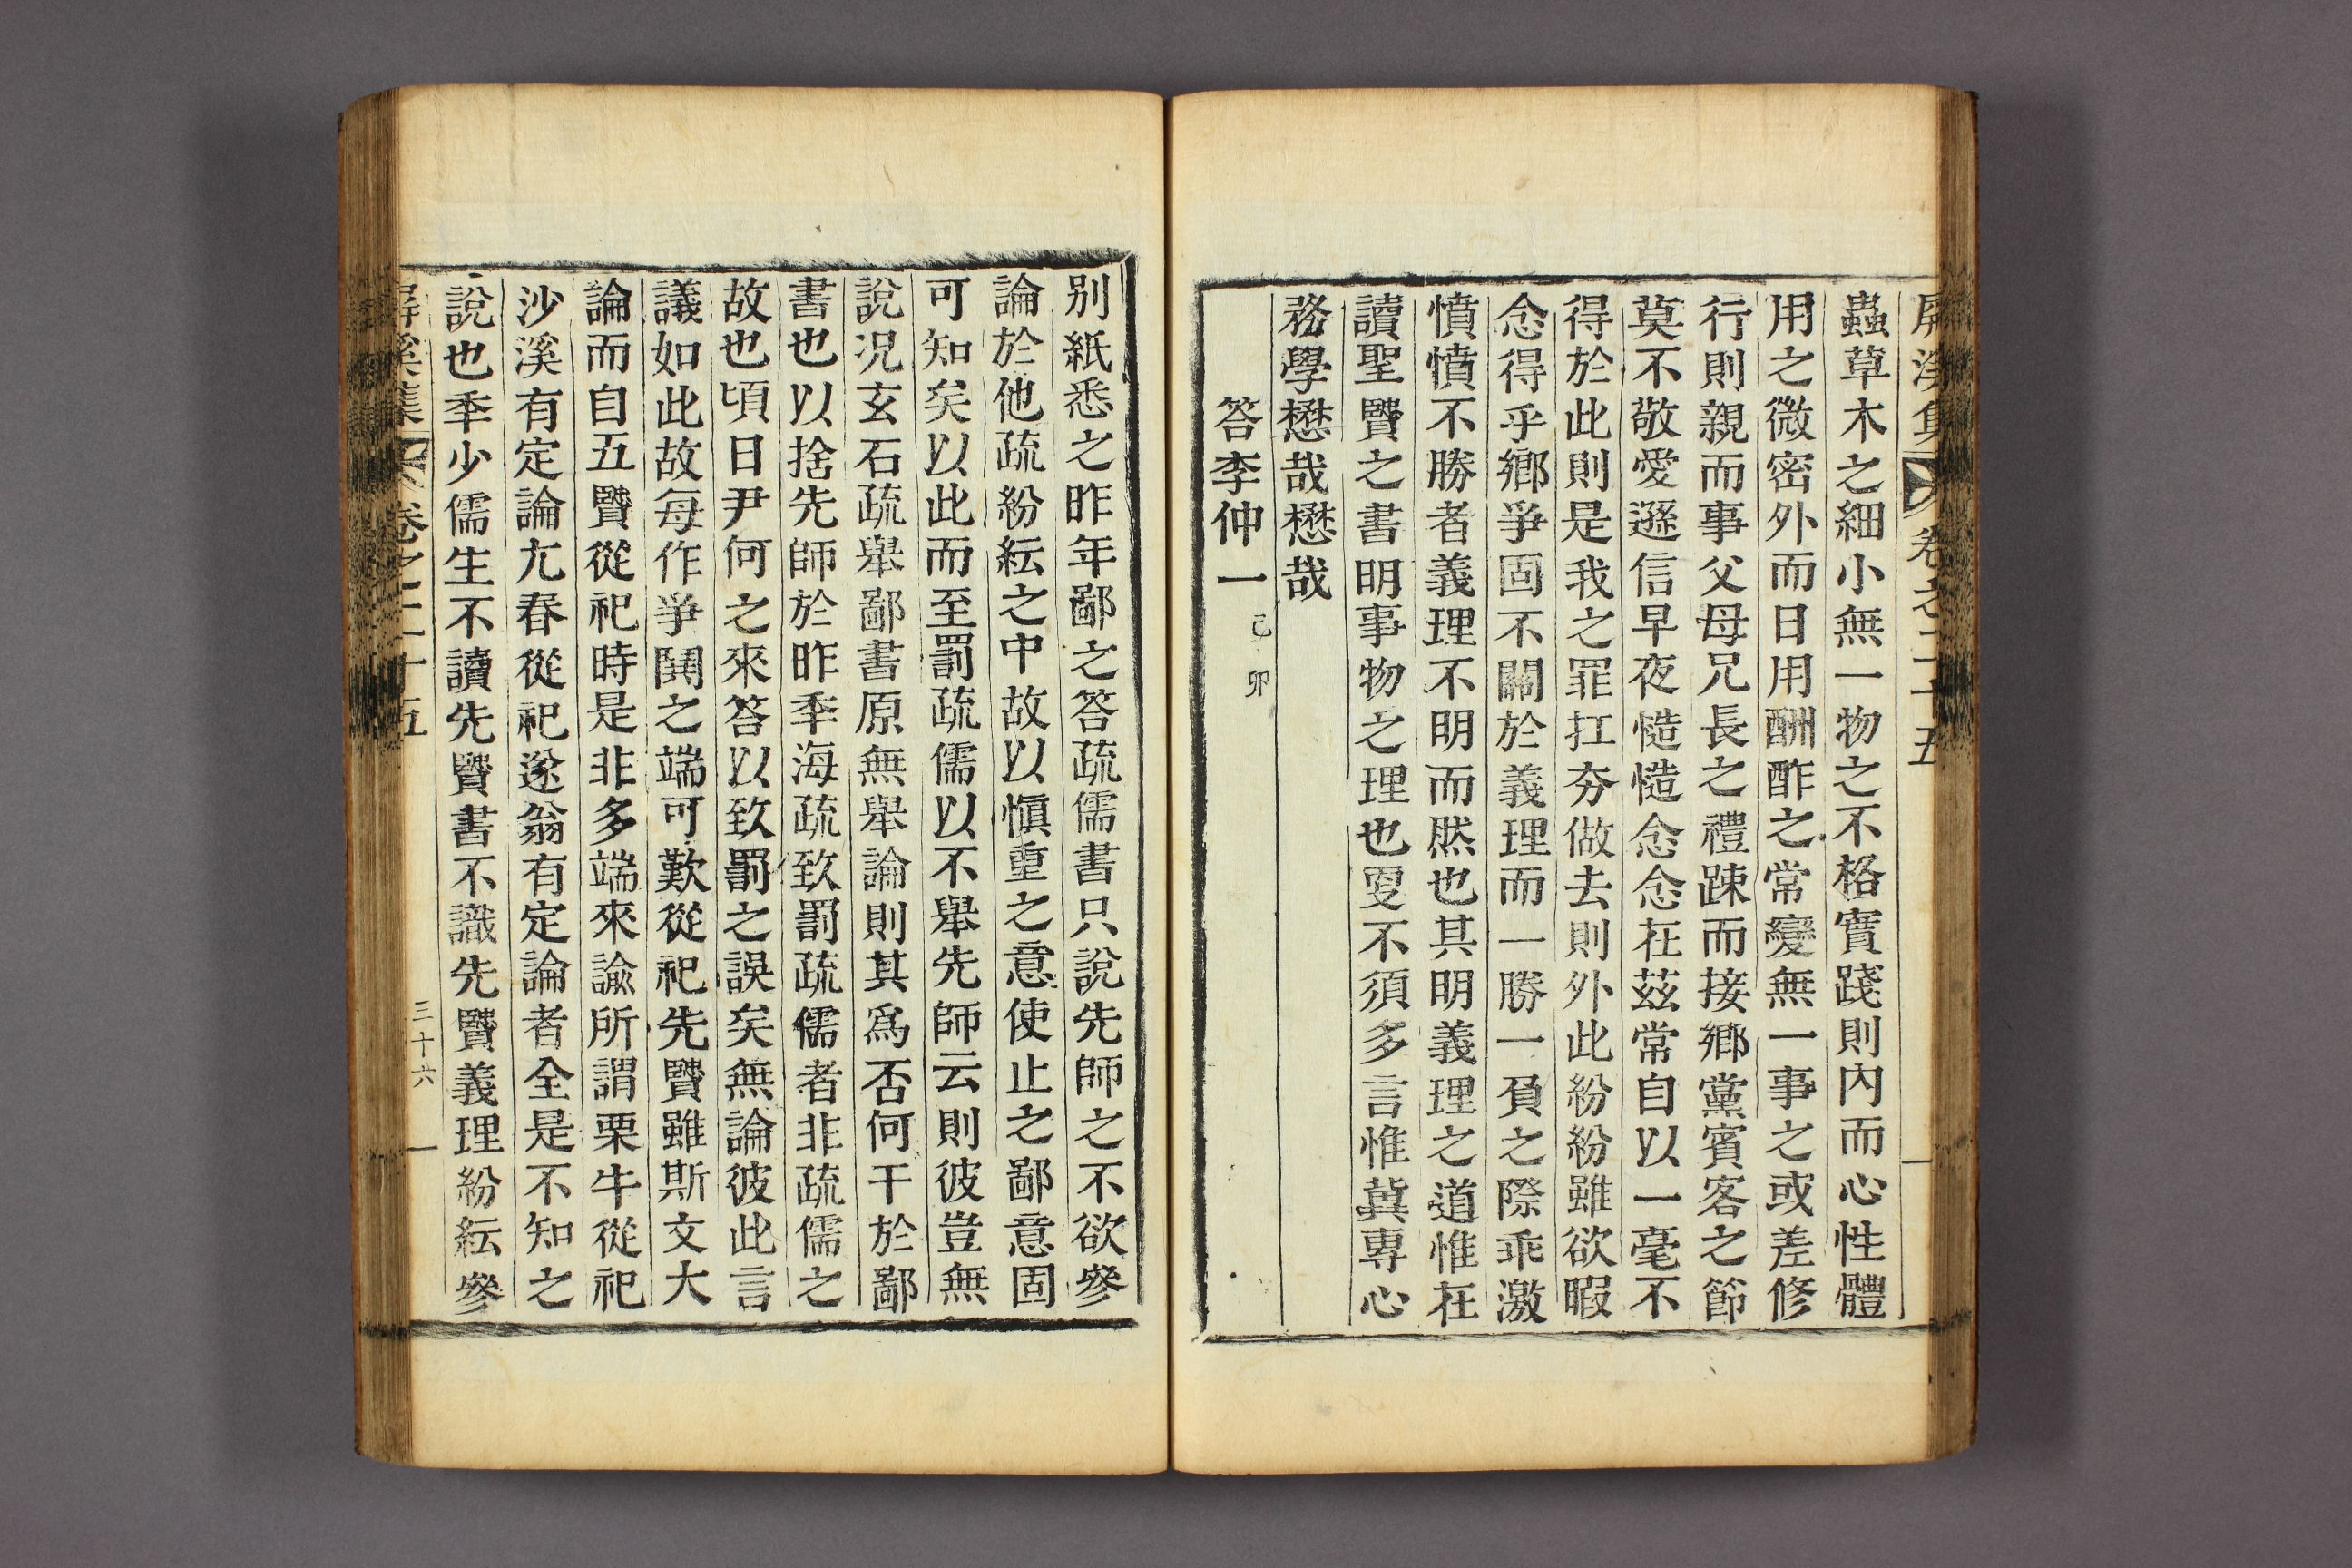 屏溪集 卷之二十五
蟲草木之細小無一物之不格實踐則內而心性體
用之微密外而日用酬酢之常變無一事之或差修
行則親而事父母兄長之禮踈而接鄉黨賓客之節
莫不敬愛遜信早夜慥慥念念在茲常自以一毫不
得於此則是我之罪扛夯做去則外此紛紛雖欲暇
念得乎鄉爭固不關於義理而一勝一負之際乖激
憤憤不勝者義理不明而然也其明義理之道惟在
讀聖賢之書明事物之理也更不須多言惟冀專心
務學懋哉懋哉
答李仲一 己卯
別紙悉之昨年鄙之答疏儒書只說先師之不欲參
論於他疏紛紜之中故以愼重之意使止之鄙意固
可知矣以此而至罰疏儒以不舉先師云則彼豈無
說况玄石疏舉鄙書原無舉論則其爲否何干於鄙
書也以捨先師於昨季海疏致罰疏儒者非疏儒之
故也頃日尹何之來答以致罰之誤矣無論彼此言
議如此故每作爭鬨之端可歎從祀先賢雖斯文大
論而自五賢從祀時是非多端來諭所謂栗牛從祀
沙溪有定論尤春從祀遂翁有定論者全是不知之
說也季少儒生不讀先賢書不識先賢義理紛紜參
屏溪集 卷之二十五 三十六